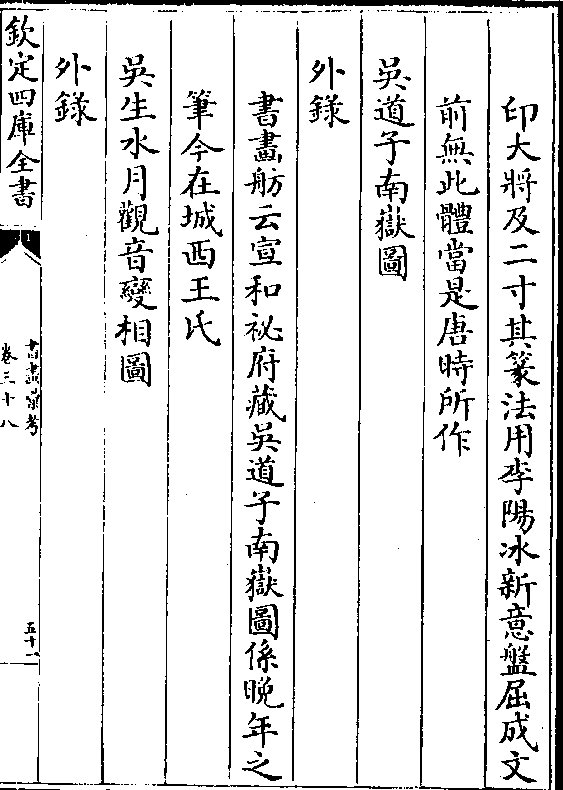 印大將及二寸其篆法用李陽冰新意盤屈成文
前無此體當是唐時所作
吳道子南嶽圖
外錄
書畫舫云宣和祕府藏吳道子南嶽圖係晚年之
筆今在城西王氏
吳生水月觀音變相圖
外錄
欽定四庫全書
書畫彙考
卷三十八
五十一